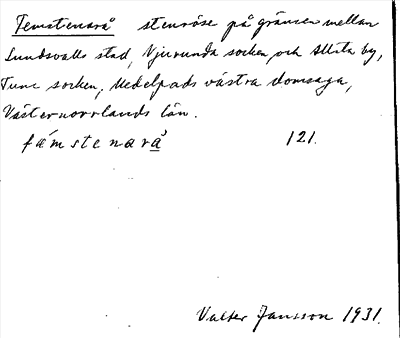 Femstenarå stenröse på gränsen mellan
Sundsvalls stad, Njurunda socken och Allsta by,
Tuna socken, Medelpads västra domsaga,
Västernorrlands län.
fämstenarå 121.
Valter Jansson 1931.